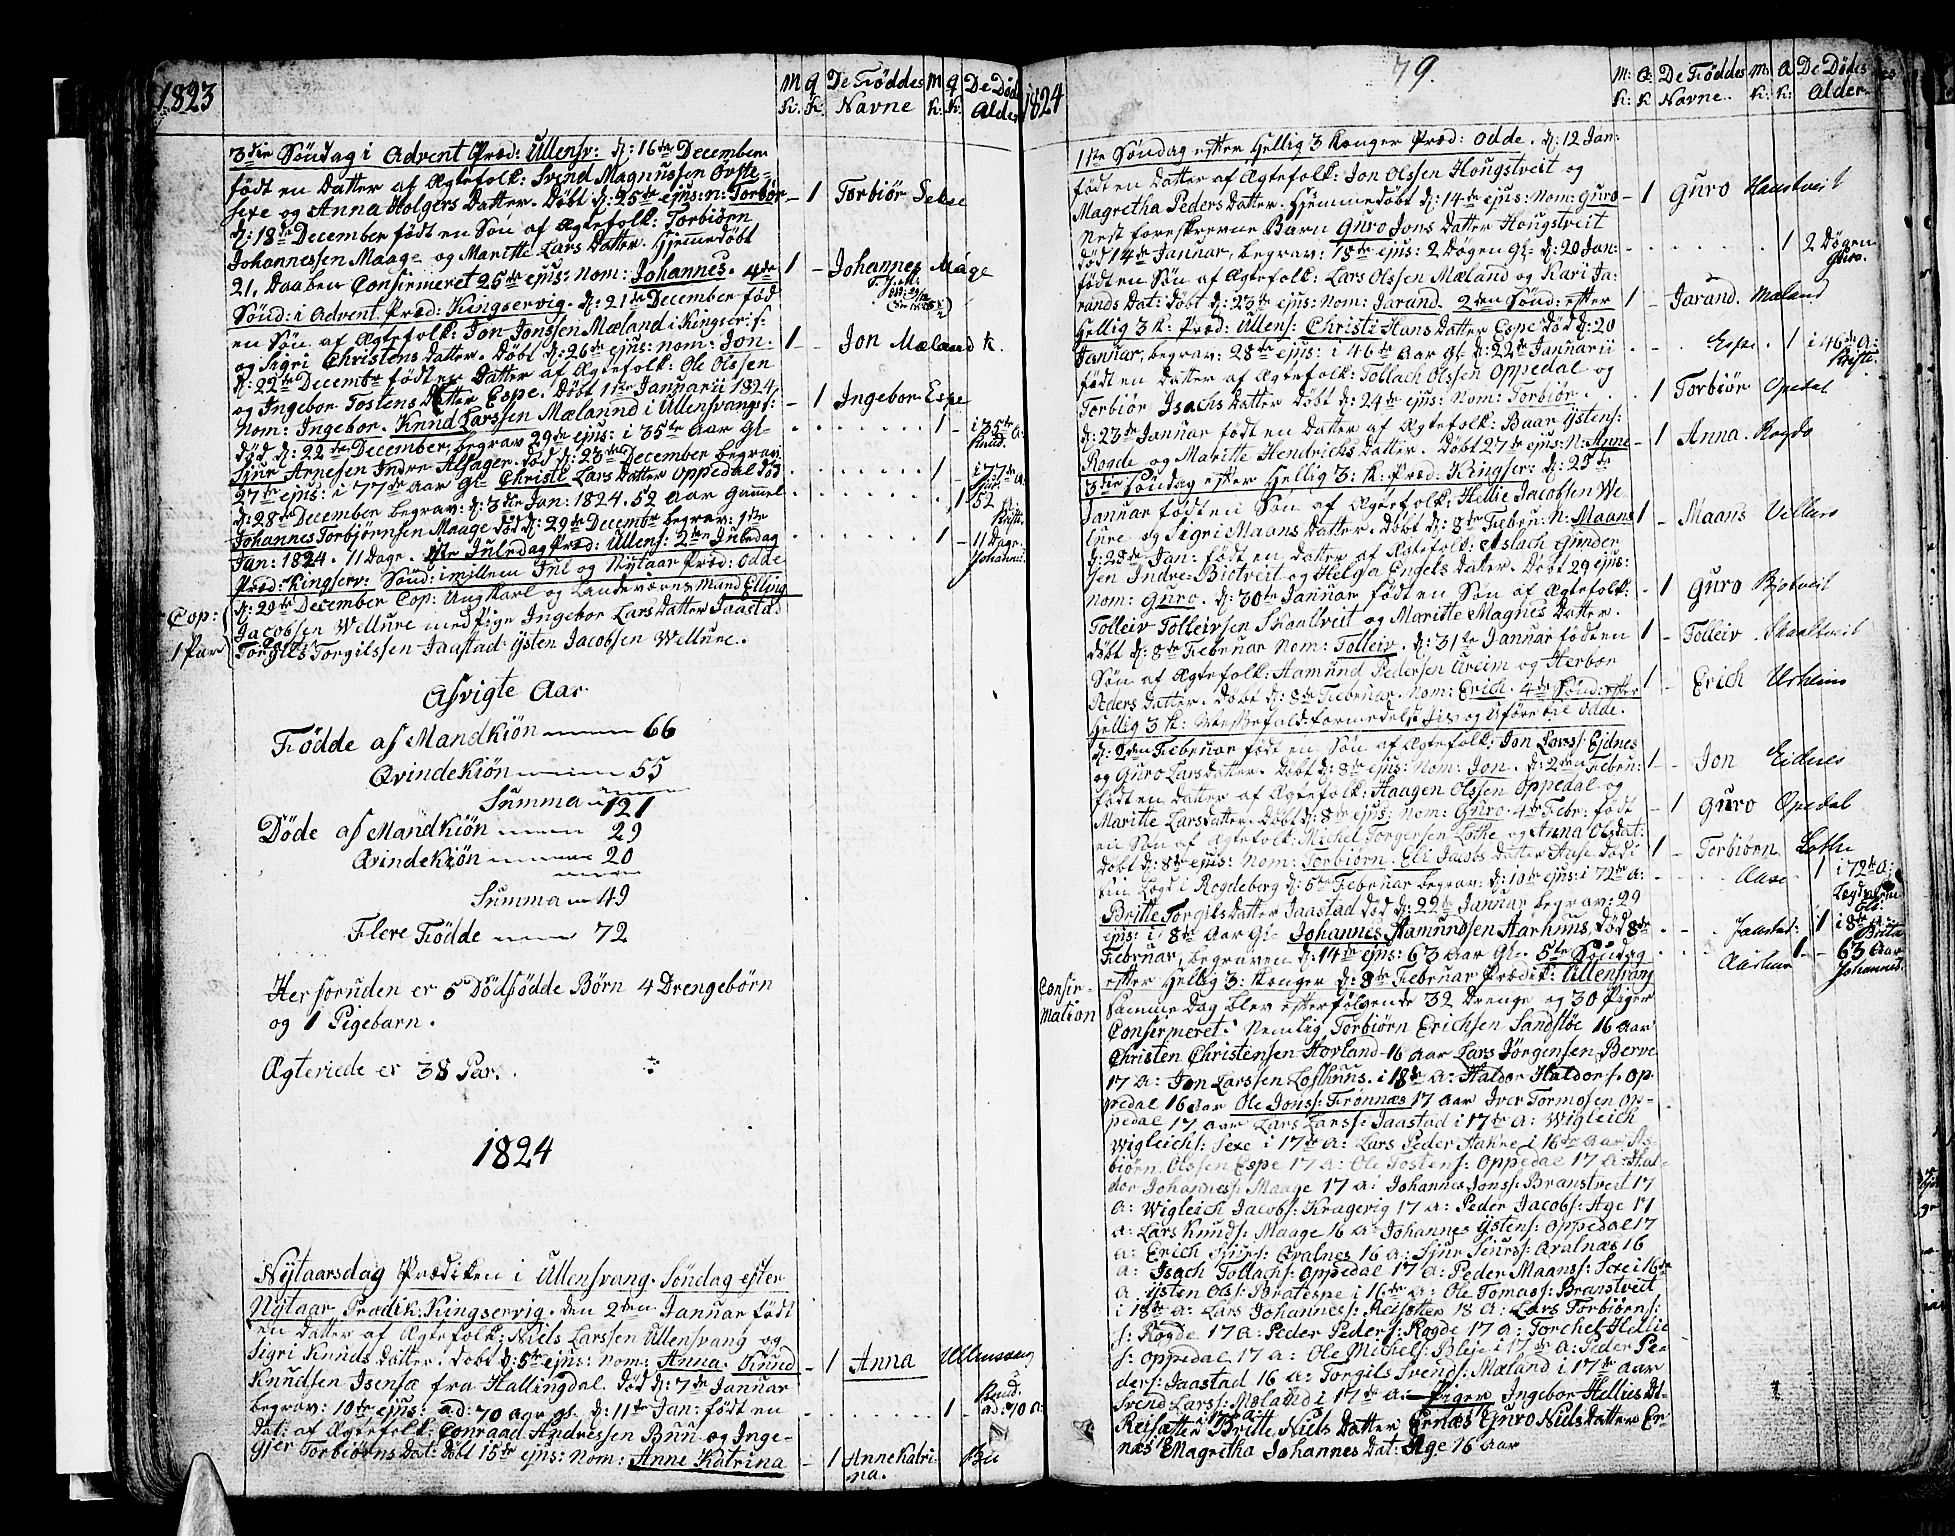 1823
M K: Q K. De Föddes Navne M K: Q K: De Döde Alder
3die Söndag i Advent Præd: Ullensv: d: 16de December
födt en Datter af Ægtefolk: Svend Magnussen Övste-
sexe og Anna Holgers Datter. Döbt d: 25de ejus: n: Torbiör – 1 Torbiör Sexe
d: 18de December födt en Sön af Ægtefolk: Torbiörn
Johannessen Maage og Maritte Lars Datter. Hjemmedöbt
21. Daaben Confirmeret 26de ejus: nom: Johannes. 4de 1 – Johannes Måge
Sönd: i Advent Præd: Kingservig. d: 21de December fød
en Sön af Ægtefolk: Jon Jonssen Mæland i Kingser: s:
og Sigri Christens Datter. Döbt d: 26de ejus: nom: Jon. 1 – Jon Mæland k.
d: 22de Decembr födt en Datter af Ægtefolk: Ole Olssen
og Ingebor Tostens Datter Espe. Döbt 1ste Januarii 1824.
nom: Ingebor. Knud Larssen Mælannd i Ullensvangs s: – 1 Ingebor Espe
död d: 22de December, begrav 29de ejus: i 35te Aar Gl- 1 – i 35te A: Knud.
Sjur Arnesen Indre Alsager. död d: 23de December begrav.
27de ejus: i 77de Aar Gl- Christi Lars Datter Oppedal död 1 – i 77de A: Sjur.
d: 28de December begrav: d: 3die Jan: 1824. 52 Aar Gammel – 1 52 A: Kristi.
Johannes Torbjörnsen Maage död d: 29de Decembr begrav: 1ste
Jan: 1824. 11 Dage. 1ste Juledag Præd: Ullens: 2den Juledag 1 – 11 Dage. Johannes.
Præd: Kingserv: Sönd: imillem Jul og Nytaar Præd: Odde
Cop: d: 29de December Cop: Ungkarl og Landeværns Mand Elling
Jacobsen Wellure med Pige Ingebor Lars Datter Jaastad
1 Par Torgils Torgilssen Jaastad. Ysten Jacobsen Wellure.
Afvigte Aar
Födde af Mandkiön 66
Qvindekiön 55
Summa 121
Döde af Mandkiön 29
Qvindekiön 20
Summa 49
Flere Födde 72
Herforuden er 5 Dödfödde Börn 4 Drengebörn
og 1 Pigebarn.
Ægteviede er 38 Par.
1824
Nytaarsdag Prædiken i Ullensvang. Söndag efter
Nytaar Prædik: Kingservig. den 2den Januar födt
en Datter af Ægtefolk: Niels Larssen Ullensvang og
Sigri Knuds Datter. Döbt d: 5te ejus: nom: Anna. Knud – 1 Anna Ullensvang
Knudsen Isensæ fra Hallingdal död d: 7de Januar
begrav: 10de ejus: ad: 70 Aar gl. d: 11te Jan: födt en 1 – Knud. ad: 70 A:
Dat: af Ægtefolk: Conraad Andressen Buu og Inge-
gjer Torbiörns Dat: Döbt 15te ejus: nom: Anne Katrina – 1 Anne Katri- na. Bu
1824
79.
M: K: Q: K De Föddes Navne. M: K: Q K: De Dödes Alder
1ste Söndag efter Hellig 3 Konger Præd: Odde. d: 12 Jan:
födt en Datter af Ægtefolk: Jon Olssen Hougstveit og
Magretha Peders Datter. Hjemmedöbt d: 14de ejus: Nom: Guro – 1 Guro Haustveit
Nest foreskrevne Barn Guro Jons Datter Hougstveit
död 14de Januar, begrav: 18de ejus: 2 Dögen Gl- d: 20 Jan: 1 2 Dögen Guro.
födt en Sön af Ægtefolk: Lars Olssen Mæland og Kari Ja-
rands Dat: döbt d: 23de ejus: Nom: Jarand. 2den Sönd: efter 1 – Jarand. Mæland
Hellig 3 K: Præd: Ullens: Christi Hans Datter Espe Död d: 20
Januar, begrav: 28de ejus: i 46de Aar Gl- d: 22de Januarii Espe. 1 i 46de A: Kristi.
födt en Datter af Ægtefolk: Tollach Olssen Oppedal og
Torbiör Isachs Datter döbt d: 24de ejus: Nom: Torbiör. 1 Torbiör Opedal
d: 23de Januar födt en Datter af Ægtefolk: Baar Ystens:
Rogde og Maritte Hendrichs Datter. Döbt 27de ejus: N: Anne – 1 Anna. Rogde
3die Söndag efter Hellig 3: K: Præd: Kingser: d: 25de
Januar födt en Sön af Ægtefolk: Hellie Jacobsen We-
lure og Sigri Maans Datter. döbt d: 8de Febru: N: Maans 1 – Maans Villure
d: 28de Jan: födt en Datter af Ægtefolk: Aslach Gunder
sen Indre-Bietveit og Helga Engels Datter. Döbt 29 ejus:
Nom: Guro. d: 30te Januar födt en Sön af Ægtefolk: – 1 Guro Bjotveit
Tolleiv Tolleivsen Skaaltveit og Maritte Magnes Datter.
döbt d: 8de Februar Nom: Tolleiv. d: 31te Januar födt en 1 – Tolleiv. Skaaltveit
Sön af Ægtefolk: Hamund Pedersen Ureim og Herbor
Peders Datter. Döbt d: 8de Februar. Nom: Erich. 4de Sönd: efter 1 – Erich Urheim
Hellig 3 K: Messefald formedelst Iis og Uføre til Odde.
d: 2den Februar födt en Sön af Ægtefolk: Jon Larss: Ejdnes
og Guro Lars Datter. Döbt d: 8de ejus: Nom: Jon. d: 2den Febru: 1 – Jon Eidnes
födt en Datter af Ægtefolk: Haagen Olssen Oppedal og
Maritte Lars Datter. Döbt d: 8de ejus: Nom: Guro. 4de Febr: födt – 1 Guro Opedal
en Sön af Ægtefolk: Michel Torgersen Lothe og Anna Ols Dat:
döbt d: 8de ejus: Nom: Torbiörn. Eli Jacobs Datter Aase död i 1 – Torbiörn Lothe
sin Lægd i Rogdeberg d: 5te Februar begrav: d: 10de ejus: i 72de A: Aase. 1 i 72de A:
Britte Torgils Datter Jaastad död d: 22de Januar begrav: 29
ejus: i 8de Aar Gl- Johannes Hamundsen Aarhuus, död 8de Jaastad: 1 i 8de A: Brita
Februar, begraven d: 14de ejus: 63 Aar Gl- 5te Söndag Aarhus 1 – 63 Aar Johannes.
Confir- mation
efter Hellig 3: Konger d: 8de Februar Prædik: Ullensvang
Samme Dag blev efterfölgende 32 Drenge og 30 Piger
Confirmeret: Nemlig Torbiörn Erichsen Sandstöe 16 Aar
Christen Christensen Hovland 16 Aar Lars Jörgensen Berve
17 A: Jon Larssen Lofthuus. i 18de A: Haldor Haldors: Op-
pedal 16 Aar Ole Jonss: Frönnæs 17 Aar Iver Tormosen Op-
pedal 17 Aar Lars Larss: Jaastad i 17de A: Wigleich
Wigleichs: Sexe i 17de A: Lars Peder Hakne i 16de Aar As-
biörn Olssen Espe 17 A: Ole Tostens: Oppedal 17 A: Hal-
dor Johanness: Maage 17 A: Johannes Jonss: Branstveit 17
A: Wigleich Jacobs: Kragevig 17 A: Peder Jacobs: Age 17
A: Lars Knuds: Maage 16 A: Johannes Ystens: Oppedal 17
A: Erich Sjurs: Qvalnes 16 A: Sjur Siurss: Qvalnæs 16
A: Isach Tollachs: Oppedal 17 A: Peder Maanss: Sexe i 16de
A. Ysten Ols: Bratespe i 16de A: Ole Tomass: Branstveit
i 18de A: Lars Johanness: Reisæter 18 A: Lars Torbiörns:
s: Rogde 17 A: Peder Peders: Rogde 17 A: Torchel Hellie
s: Oppedal 17 A: Ole Michels: Bleje i 17de A: Peder Pe-
ders: Jaastad 16 A: Torgils Svends: Mæland i 17de Aar
Svend Larss: Mæland i 17de A: Piger Ingebor Hellies D-
Reisatter i 17de A: Britte Niels Datter Ernæs Guro Niels Datter Er-
næs Magretha Johannes Dat: Age 16 Aar